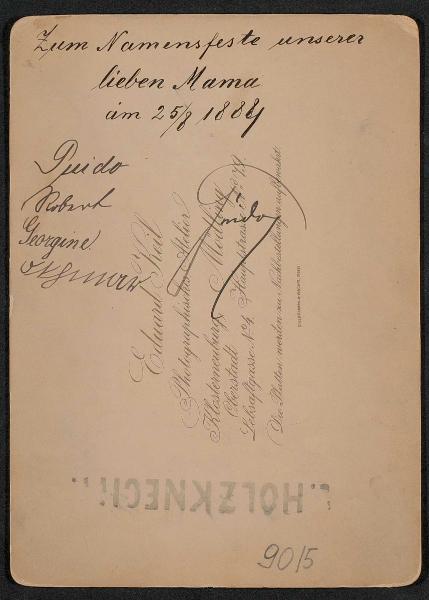 Zum Namensfeste unserer
lieben Mama
am 25/8 1884
Guido
Robert
Georgine
Othmar
Guido
Eduard Keil
Photographisches Atelier
Klosterneuburg Mödling
Oberstadt Hauptstrasse No. 79.
Lebsaftgasse No. 4.
Die Platten werden zu Nachbestellungen aufbewahrt.
HOLZKNECHT
9015